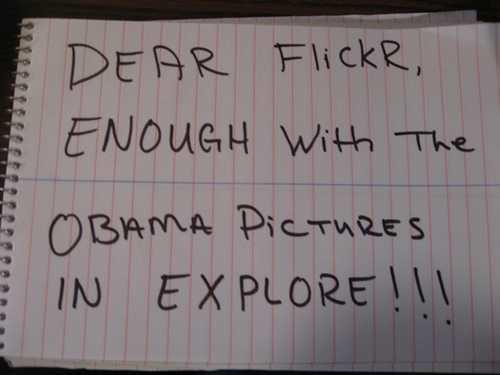 DEAR FlickR,
ENOUGH With The
OBAMA PiCTURES
IN EXPLORE!!!